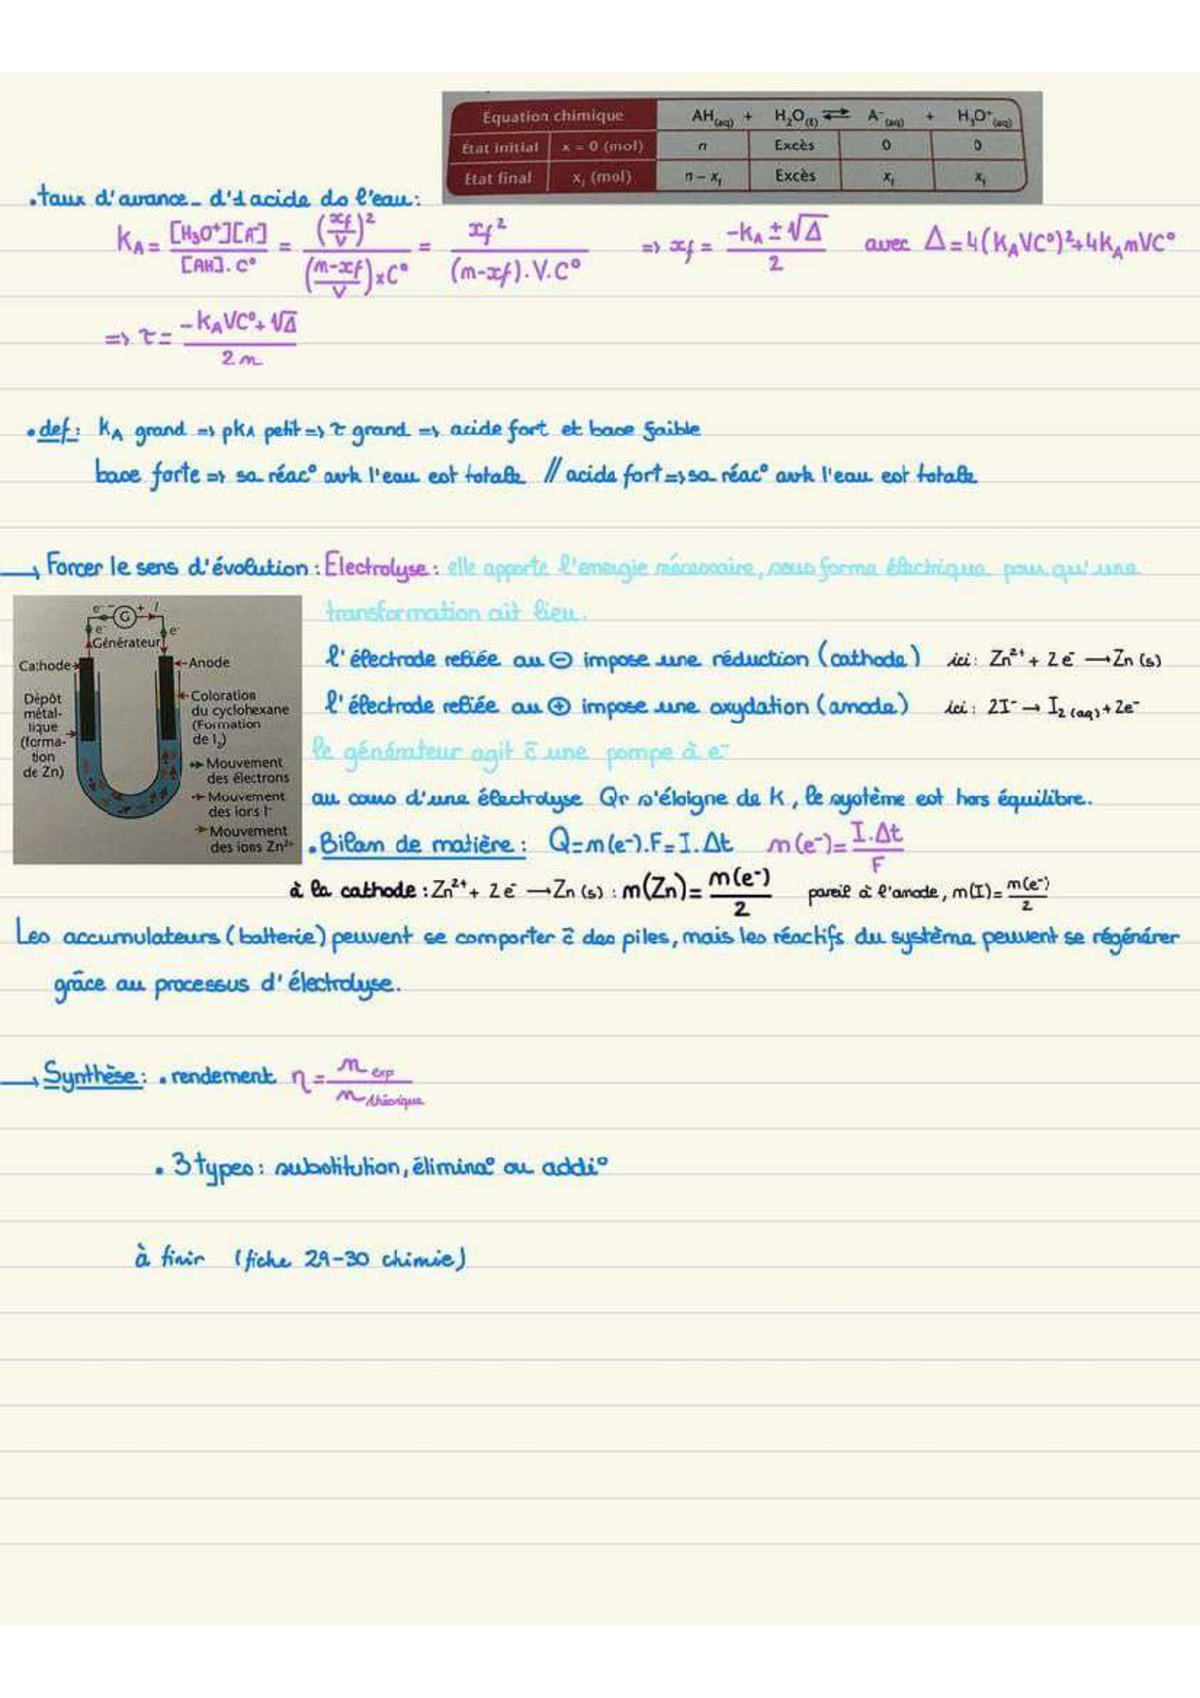 Équation chimique | AH(aq) + H₂O(ℓ) ⇌ A⁻(aq) + H₃O⁺(aq)
État initial | x = 0 (mol) | n | Excès | 0 | 0
État final | x_f (mol) | n − x_f | Excès | x_f | x_f
.taux d'avance_ d'1 acide ds l'eau:
K_A = [H₃O⁺][A⁻] / [AH].C° = (xf/V)² / ((n-xf)/V)×C° = xf² / (n-xf).V.C° => xf = (-K_A ± √Δ) / 2 avec Δ = 4(K_AVC°)²+4K_AnVC°
=> τ = (-K_AVC°+√Δ) / 2n
.def: K_A grand => pK_A petit => τ grand => acide fort et base faible
base forte => sa réac° avk l'eau est totale // acide fort => sa réac° avk l'eau est totale
→ Forcer le sens d'évolution : Électrolyse : elle apporte l'énergie nécessaire, sous forme électrique pour qu'une
transformation ait lieu.
e⁻ - G + I
e⁻ e⁻
Générateur
Cathode
Anode
Dépôt
métal-
lique
(forma-
tion
de Zn)
Coloration
du cyclohexane
(Formation
de I₂)
Mouvement
des électrons
Mouvement
des ions I⁻
Mouvement
des ions Zn²⁺
l'électrode reliée au ⊖ impose une réduction (cathode) ici : Zn²⁺ + 2e⁻ → Zn (s)
l'électrode reliée au ⊕ impose une oxydation (anode) ici : 2I⁻ → I₂ (aq) + 2e⁻
le générateur agit c̄ une pompe à e⁻
au cours d'une électrolyse Qr s'éloigne de K, le système est hors équilibre.
.Bilan de matière : Q=n(e⁻).F=I.Δt n(e⁻)= I.Δt / F
à la cathode : Zn²⁺ + 2e⁻ → Zn (s) : n(Zn) = n(e⁻) / 2 pareil à l'anode, n(I) = n(e⁻) / 2
Les accumulateurs (batterie) peuvent se comporter c̄ des piles, mais les réactifs du système peuvent se régénérer
grâce au processus d'électrolyse.
→ Synthèse : .rendement η = n exp / n théorique
. 3 types : substitution, élimina° ou addi°
à finir (fiche 29-30 chimie)